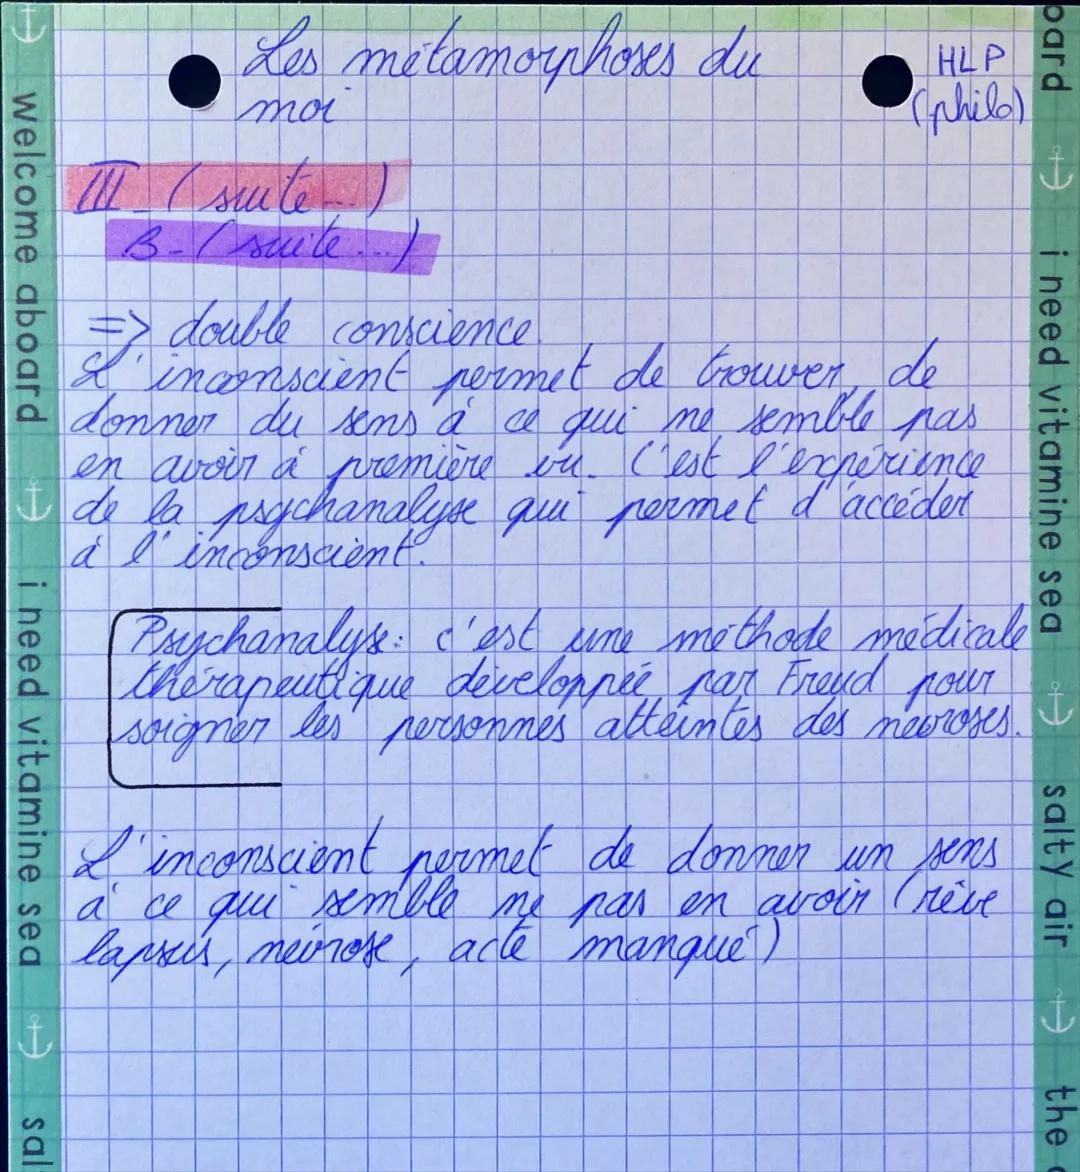 Les métamorphoses du
moi
HLP
(philo)
III_(suite...)
B-(suite...)
=> double conscience.
L'inconscient permet de trouver, de
donner du sens à ce qui ne semble pas
en avoir à première vu. C'est l'expérience
de la psychanalyse qui permet d'accéder
à l'inconscient.
Psychanalyse: c'est une méthode médicale
thérapeutique développée par Freud pour
soigner les personnes atteintes des névroses.
L'inconscient permet de donner un sens
à ce qui semble ne pas en avoir (rêve
lapsus, névrose, acte manqué)
welcome aboard
i need vitamine sea
sal
oard
i need vitamine sea
salty air
the